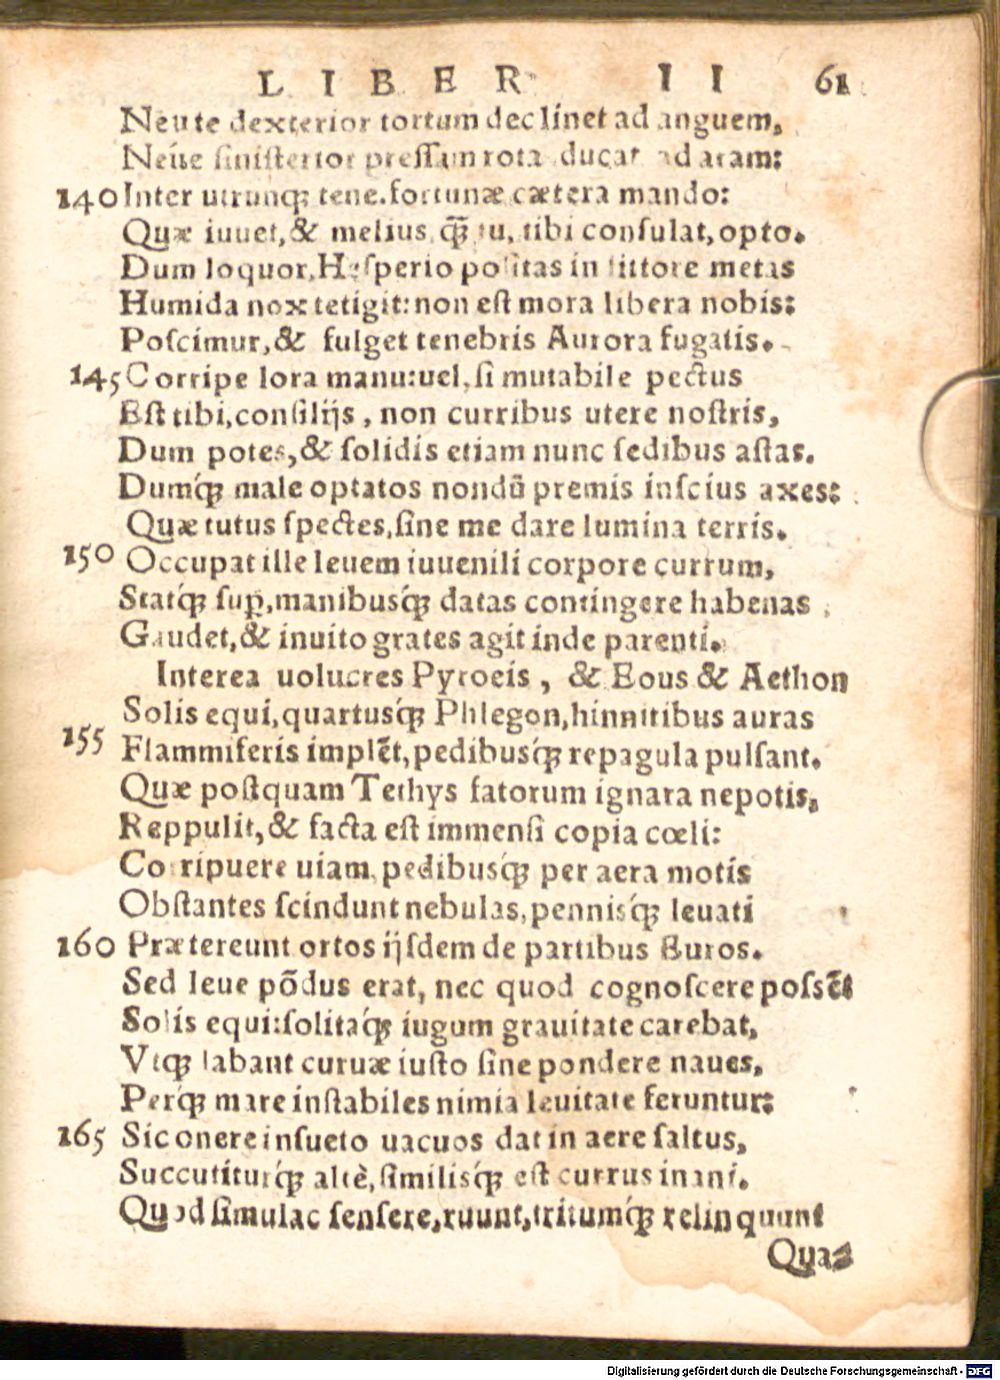 LIBER II 61
Neu te dexterior tortum declinet ad anguem,
Néue sinisterior pressam rota ducat ad aram:
140 Inter utrunq; tene. fortunæ cætera mando:
Quæ iuuet, & melius q̃ tu, tibi consulat, opto.
Dum loquor, Hesperio positas in littore metas
Humida nox tetigit: non est mora libera nobis:
Poscimur, & fulget tenebris Aurora fugatis.
145 Corripe lora manu: uel, si mutabile pectus
Est tibi, consilijs, non curribus utere nostris,
Dum potes, & solidis etiam nunc sedibus astas.
Dumq́; male optatos nondũ premis inscius axes:
Quæ tutus spectes, sine me dare lumina terris.
150 Occupat ille leuem iuuenili corpore currum,
Statq́; sup̱, manibusq́; datas contingere habenas
Gaudet, & inuito grates agit inde parenti.
Interea uolucres Pyroeis, & Eous & Aethon
Solis equi, quartusq́; Phlegon, hinnitibus auras
155 Flammiferis implẽt, pedibusq́; repagula pulsant.
Quæ postquam Tethys fatorum ignara nepotis,
Reppulit, & facta est immensi copia cœli:
Corripuere uiam, pedibusq́; per aera motis
Obstantes scindunt nebulas, pennisq́; leuati
160 Prætereunt ortos ijsdem de partibus Euros.
Sed leue põdus erat, nec quod cognoscere possẽt
Solis equi: solitaq́; iugum grauitate carebat,
Vtq́; labant curuæ iusto sine pondere naues,
Perq́; mare instabiles nimia leuitate feruntur:
165 Sic onere insueto uacuos dat in aere saltus,
Succutiturq́; altè, similisq́; est currus inani.
Quod simulac sensere, ruunt, tritumq́; relinquunt
Qua-
Digitalisierung gefördert durch die Deutsche Forschungsgemeinschaft - DFG